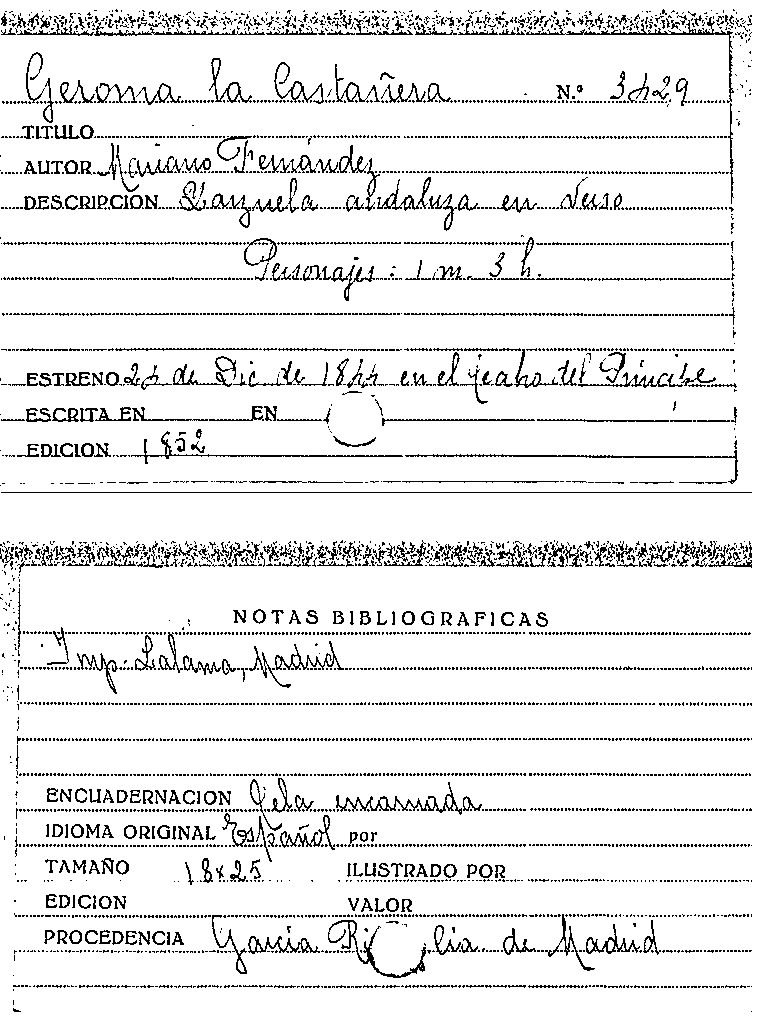 Geroma la Castañera N.º 3429
TITULO
AUTOR Mariano Fernández
DESCRIPCIÓN Zarzuela andaluza en verso
Personajes: 1 m. 3 h.
ESTRENO 24 de Dic de 1844 en el teatro del Principe
ESCRITA EN EN
EDICION 1852
NOTAS BIBLIOGRAFICAS
Imp. Lalama, Madrid
ENCUADERNACION Tela encarnada
IDIOMA ORIGINAL Español por
TAMAÑO 18x25 ILUSTRADO POR
EDICION VALOR
PROCEDENCIA García de Madrid